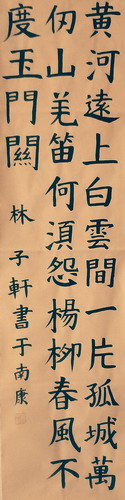 黃河遠上白雲間一片孤城萬
仞山羌笛何須怨楊柳春風不
度玉門關
林子軒書于南康